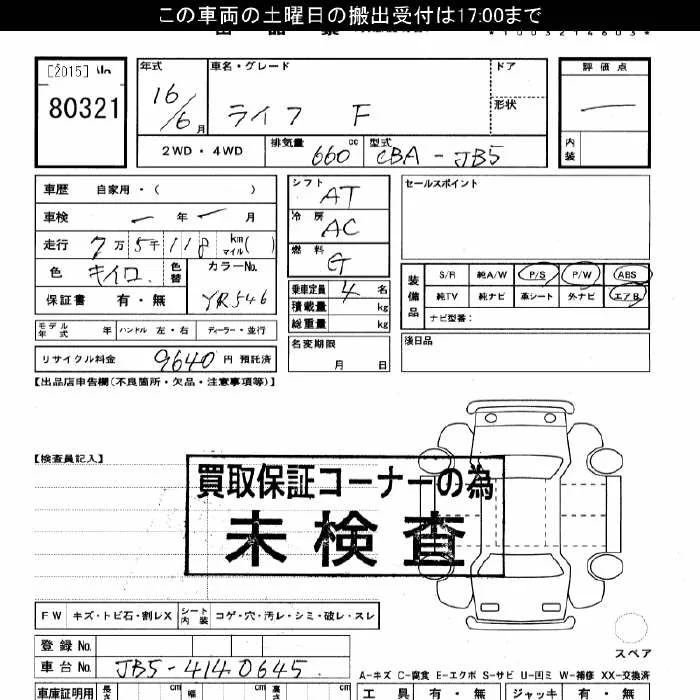 この車両の土曜日の搬出受付は17:00まで
*1003214603*
[2015] No
80321
年式 車名・グレード ドア 評価点
16/6月 ライフ F 形状 —
2WD・4WD 排気量 660cc 型式 CBA-JB5 内装
車歴 自家用・( )
シフト AT
セールスポイント
車検 — 年 — 月
冷房 AC
走行 7万5千118 km マイル( )
燃料 G
色 キイロ 色替 カラーNo. YR546
保証書 有・無
乗車定員 4名
積載量 kg
総重量 kg
装備品 S/R 純A/W P/S P/W ABS
純TV 純ナビ 革シート 外ナビ エアB
ナビ型番:
モデル年式 年 ハンドル 左・右 ディーラー・並行
名変期限 月 日
後日品
リサイクル料金 9640円 預託済
【出品店申告欄(不良箇所・欠品・注意事項等)】
【検査員記入】
買取保証コーナーの為
未検査
FW キズ・トビ石・割レX シート内装 コゲ・穴・汚レ・シミ・破レ・スレ
スペア
登録No.
車台No. JB5-4140645
A-キズ C-腐食 E-エクボ S-サビ U-凹ミ W-補修 XX-交換済
車庫証明用 長さ cm 幅 cm 高さ cm
工具 有・無 ジャッキ 有・無